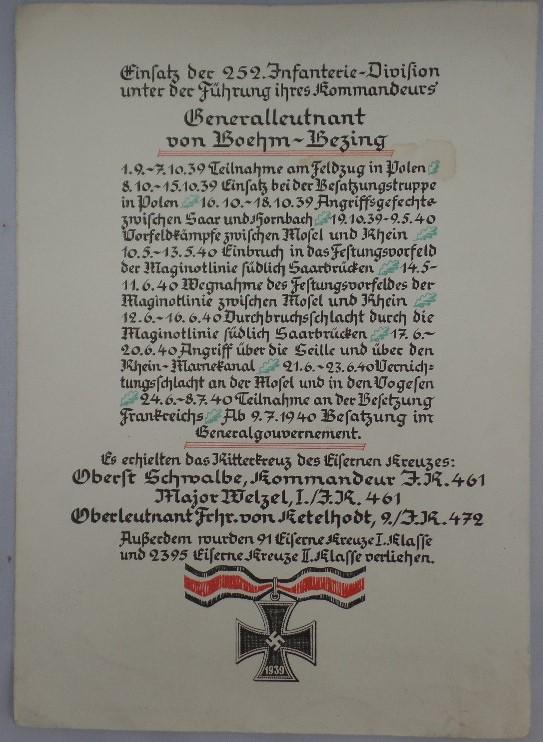 Einsatz der 252. Infanterie-Division
unter der Führung ihres Kommandeurs
Generalleutnant
von Boehm-Bezing
1.9.-7.10.39 Teilnahme am Feldzug in Polen
8.10.-15.10.39 Einsatz bei der Besatzungstruppe
in Polen 16.10.-18.10.39 Angriffsgefechte
zwischen Saar und Hornbach 19.10.39-9.5.40
Vorfeldkämpfe zwischen Mosel und Rhein
10.5.-13.5.40 Einbruch in das Festungsvorfeld
der Maginotlinie südlich Saarbrücken 14.5-
11.6.40 Wegnahme des Festungsvorfeldes der
Maginotlinie zwischen Mosel und Rhein
12.6.-16.6.40 Durchbruchsschlacht durch die
Maginotlinie südlich Saarbrücken 17.6.-
20.6.40 Angriff über die Seille und über den
Rhein-Marnekanal 21.6.-23.6.40 Vernich-
tungsschlacht an der Mosel und in den Vogesen
24.6.-8.7.40 Teilnahme an der Besetzung
Frankreichs Ab 9.7.1940 Besatzung im
Generalgouvernement.
Es erhielten das Ritterkreuz des Eisernen Kreuzes:
Oberst Schwalbe, Kommandeur J.R. 461
Major Welzel, I./J.R. 461
Oberleutnant Frhr. von Ketelhodt, 9./J.R. 472
Außerdem wurden 91 Eiserne Kreuze I. Klasse
und 2395 Eiserne Kreuze II. Klasse verliehen.
1939